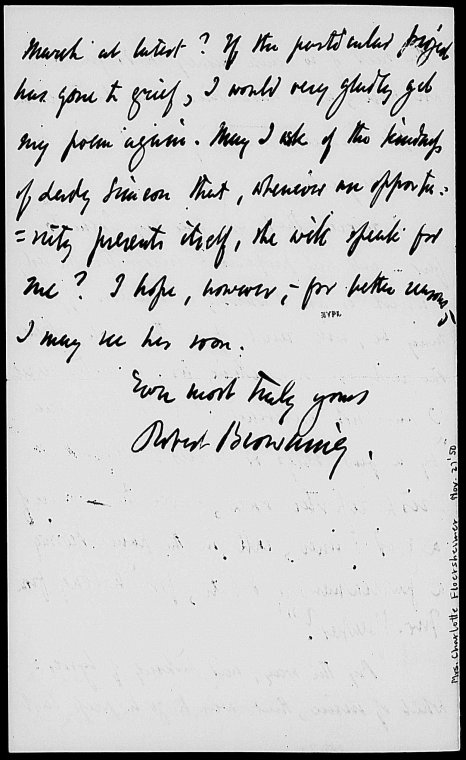 March at latest? If the particular project
has gone to grief, I would very gladly get
my poem again. May I ask of the kindness
of Lady Simeon that, whenever an opportu=
=nity presents itself, she will speak for
me? I hope, however, - for better reasons, -
I may see her soon.
Ever most truly yours
Robert Browning.
Mrs. Charlotte Floersheimer Nov. 27 '50